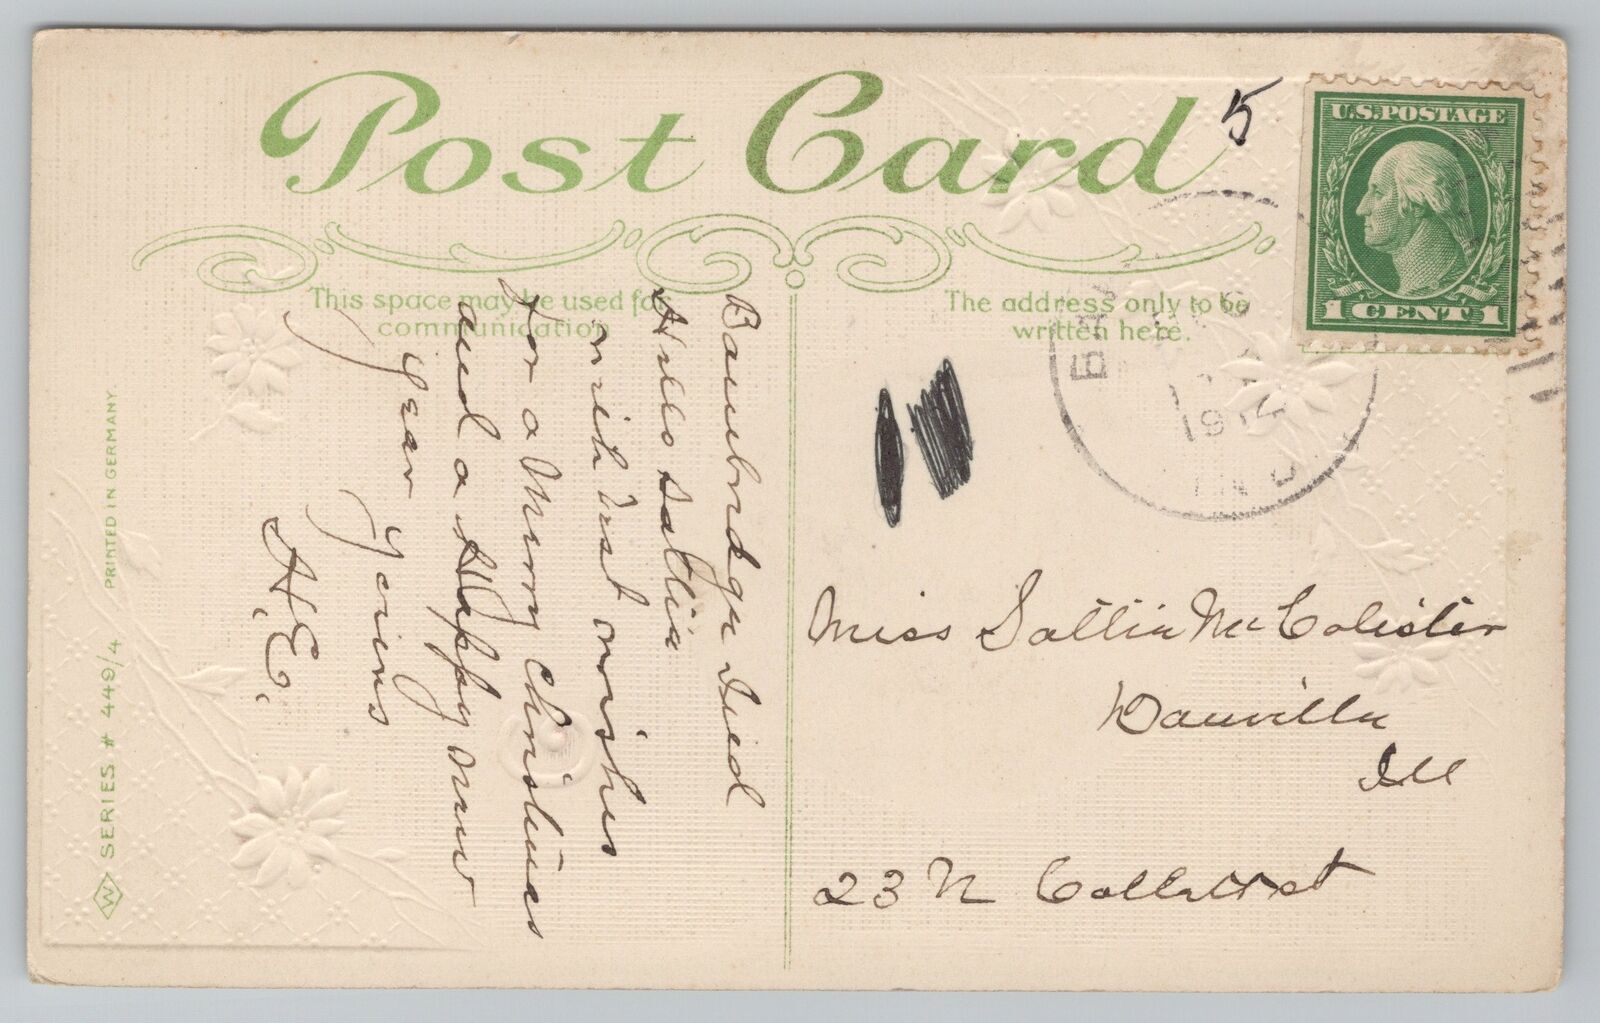 Post Card
5
U.S. POSTAGE
1 CENT 1
This space may be used for
communication
The address only to be
written here.
Bainbridge Ind
Hello Sallie
with best wishes
for a Merry Christmas
and a Happy New
Year yours
H.E.
Miss Sallie McColister
Danville
Ill
23 N Collett st
BA
191
IND
W SERIES # 449/4 PRINTED IN GERMANY.